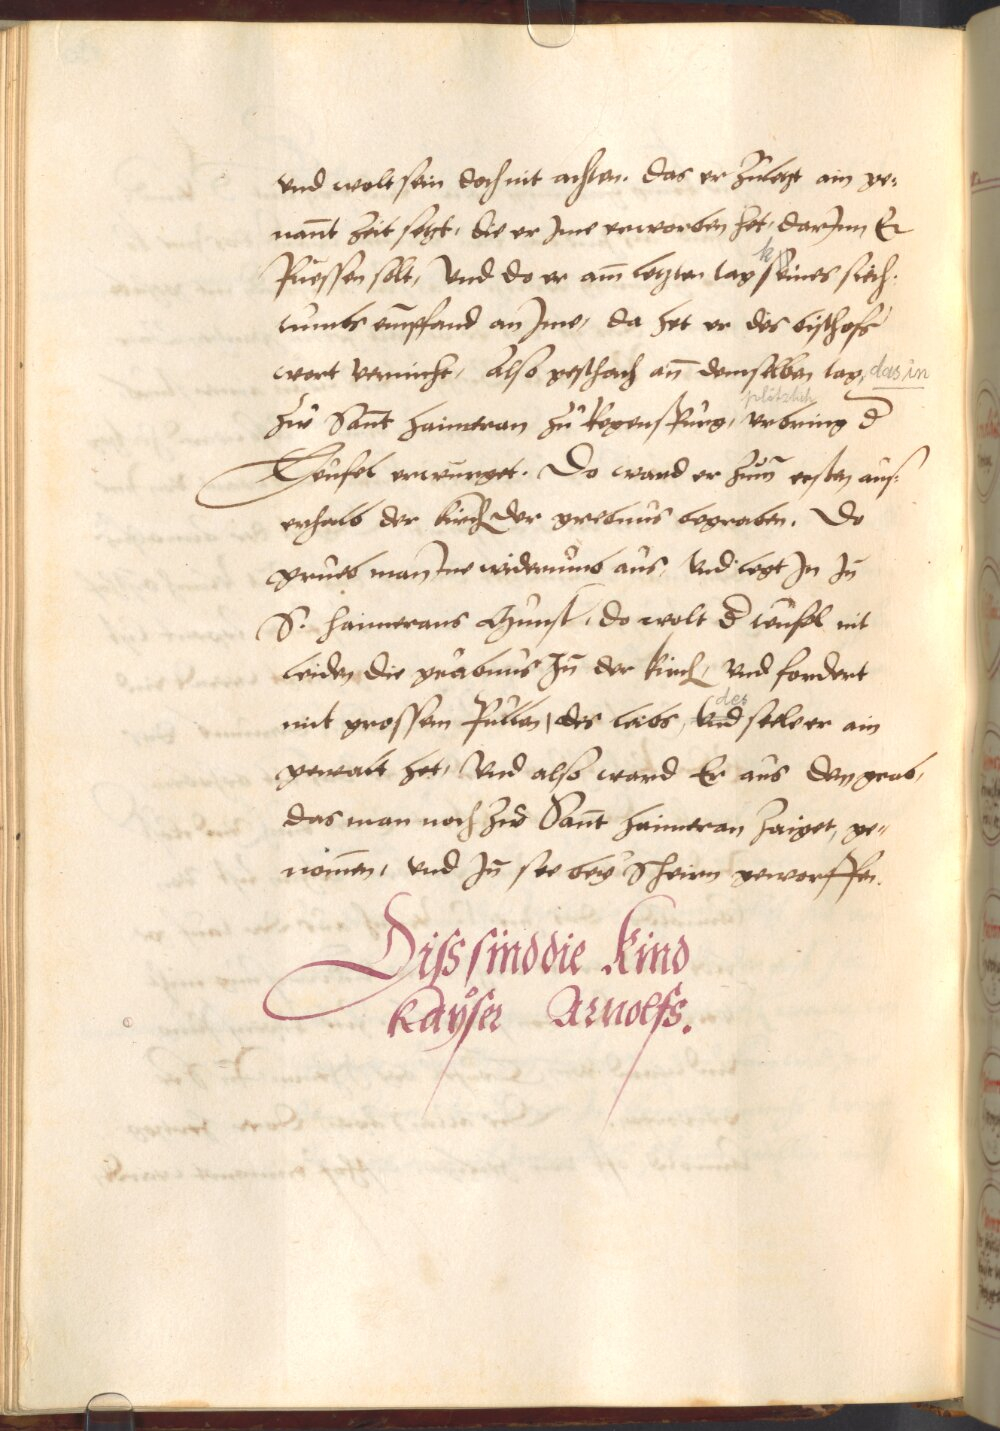 vnd wolt sein doch nit achten. das er zuletzt ain ge-
nant zeit setzt, die er Jme erworben het, darJnn Er
Puessen solt, Vnd do er am letzten tag k seines siech-
tumbs empfand an Jme, da het er des bischofs
wort vernicht, Also geschach an demselben tag, das in
zw Sant Haimeran zu Regenspurg, plötzlich vrbring d
Teufel erwurget. Do ward er zum ersten aus-
erhalb der kirch der grebnus begraben. Do
grueb man Jne widerumb aus, Vnd legt Jn Jn
S. Haimerans Gunst, do wolt d teufel nit
leiden die grabnus Jn der kirch, Vnd fordert
mit grossem Pullen, des leibs, Vnd des seele er ain
gewalt het, Vnd also ward Er aus dem grab,
das man noch zw Sant Haimeran zaiget, ge-
nomen, Vnd Jn see bey Scheirn geworffen.
Diss sind die Kind
Kayser Arnolfs.